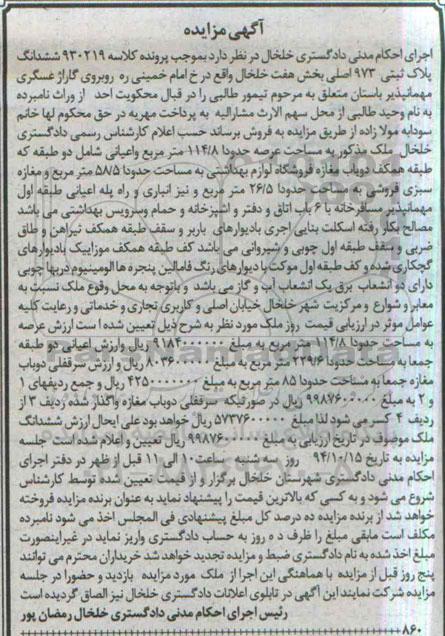 آگهی مزایده
اجرای احکام مدنی دادگستری خلخال در نظر دارد بموجب پرونده کلاسه ۹۳۰۲۱۹ ششدانگ
پلاک ثبتی ۹۷۳ اصلی بخش هفت خلخال واقع در خ امام خمینی ره روبروی گاراژ عسگری
مهمانپذیر باستان متعلق به مرحوم تیمور طالبی را در قبال محکویت احد از وراث نامبرده
به نام وحید طالبی از محل سهم الارث مشارالیه به پرداخت مهریه در حق محکوم لها خانم
سودابه مولا زاده از طریق مزایده به فروش برساند حسب اعلام کارشناس رسمی دادگستری
خلخال ملک مذکور به مساحت عرصه حدودا ۱۱۴/۸ متر مربع واعیانی شامل دو طبقه که
طبقه همکف دوباب مغازه فروشگاه لوازم بهداشتی به مساحت حدودا ۵۸/۵ متر مربع و مغازه
سبزی فروشی به مساحت حدودا ۲۶/۵ متر مربع و نیز انباری و راه پله اعیانی طبقه اول
مهمانپذیر مسافرخانه با ۶ باب اتاق و دفتر و اشپزخانه و حمام وسرویس بهداشتی می باشد
مصالح بکار رفته اسکلت بنایی اجری بادیوارهای باربر و سقف طبقه همکف تیراهن و طاق
ضربی و سقف طبقه اول چوبی و شیروانی می باشد کف طبقه همکف موزاییک بادیوارهای
گچکاری شده و کف طبقه اول موکت با دیوارهای رنگ فامالین پنجره ها الومینیوم دربها چوبی
دارای دو انشعاب برق یک انشعاب آب و گاز می باشد و باتوجه به محل وقوع ملک نسبت به
معابر و شوارع و مرکزیت شهر خلخال خیابان اصلی و کاربری تجاری و خدماتی و رعایت کلیه
عوامل موثر در ارزیابی قیمت روز ملک مورد نظر به شرح ذیل تعیین شده است ارزش عرصه
به مساحت حدودا ۱۱۴/۸ متر مربع به مبلغ ۹۱۸۴۰۰۰۰۰۰ ریال وارزش اعیانی دو طبقه
جمعا به مساحت حدودا ۲۲۹/۶ متر مربع به مبلغ ۸۰۳۶۰۰۰۰۰ ریال و ارزش سرقفلی دوباب
مغازه جمعا به مساحت حدودا ۸۵ متر مربع به مبلغ ۴۲۵۰۰۰۰۰۰۰ ریال و جمع ردیفهای ۱
و ۲ به مبلغ ۹۹۸۷۶۰۰۰۰۰ ریال در صورتیکه سرقفلی دوباب مغازه واگذار شده ردیف ۳ از
ردیف ۴ کسر می شود لذا مبلغ ۵۷۳۷۶۰۰۰۰۰ ریال خواهد بود علی ایحال ارزش ششدانگ
ملک موصوف در تاریخ ارزیابی به مبلغ ۹۹۸۷۶۰۰۰۰۰ ریال تعیین و اعلام شده است جلسه
مزایده به تاریخ ۹۴/۱۰/۱۵ روز سه شنبه ساعت ۱۰ الی ۱۱ قبل از ظهر در دفتر اجرای
احکام مدنی دادگستری شهرستان خلخال برگزار و از قیمت تعیین شده توسط کارشناس
شروع می شود و به کسی که بالاترین قیمت را پیشنهاد نماید به عنوان برنده مزایده فروخته
خواهد شد از برنده مزایده ده درصد کل مبلغ پیشنهادی فی المجلس اخذ می شود نامبرده
مکلف است مابقی مبلغ را ظرف د ه روز به حساب دادگستری واریز نماید در غیراینصورت
مبلغ اخذ شده به نام دادگستری ضبط و مزایده تجدید خواهد شد خریداران محترم می توانند
پنج روز قبل از مزایده با هماهنگی این اجرا از ملک مورد مزایده بازدید و حضورا در جلسه
مزایده شرکت نمایند این آگهی در تابلوی اعلانات دادگستری خلخال نیز الصاق گردیده است
رئیس اجرای احکام مدنی دادگستری خلخال رمضان پور
۸۶۰